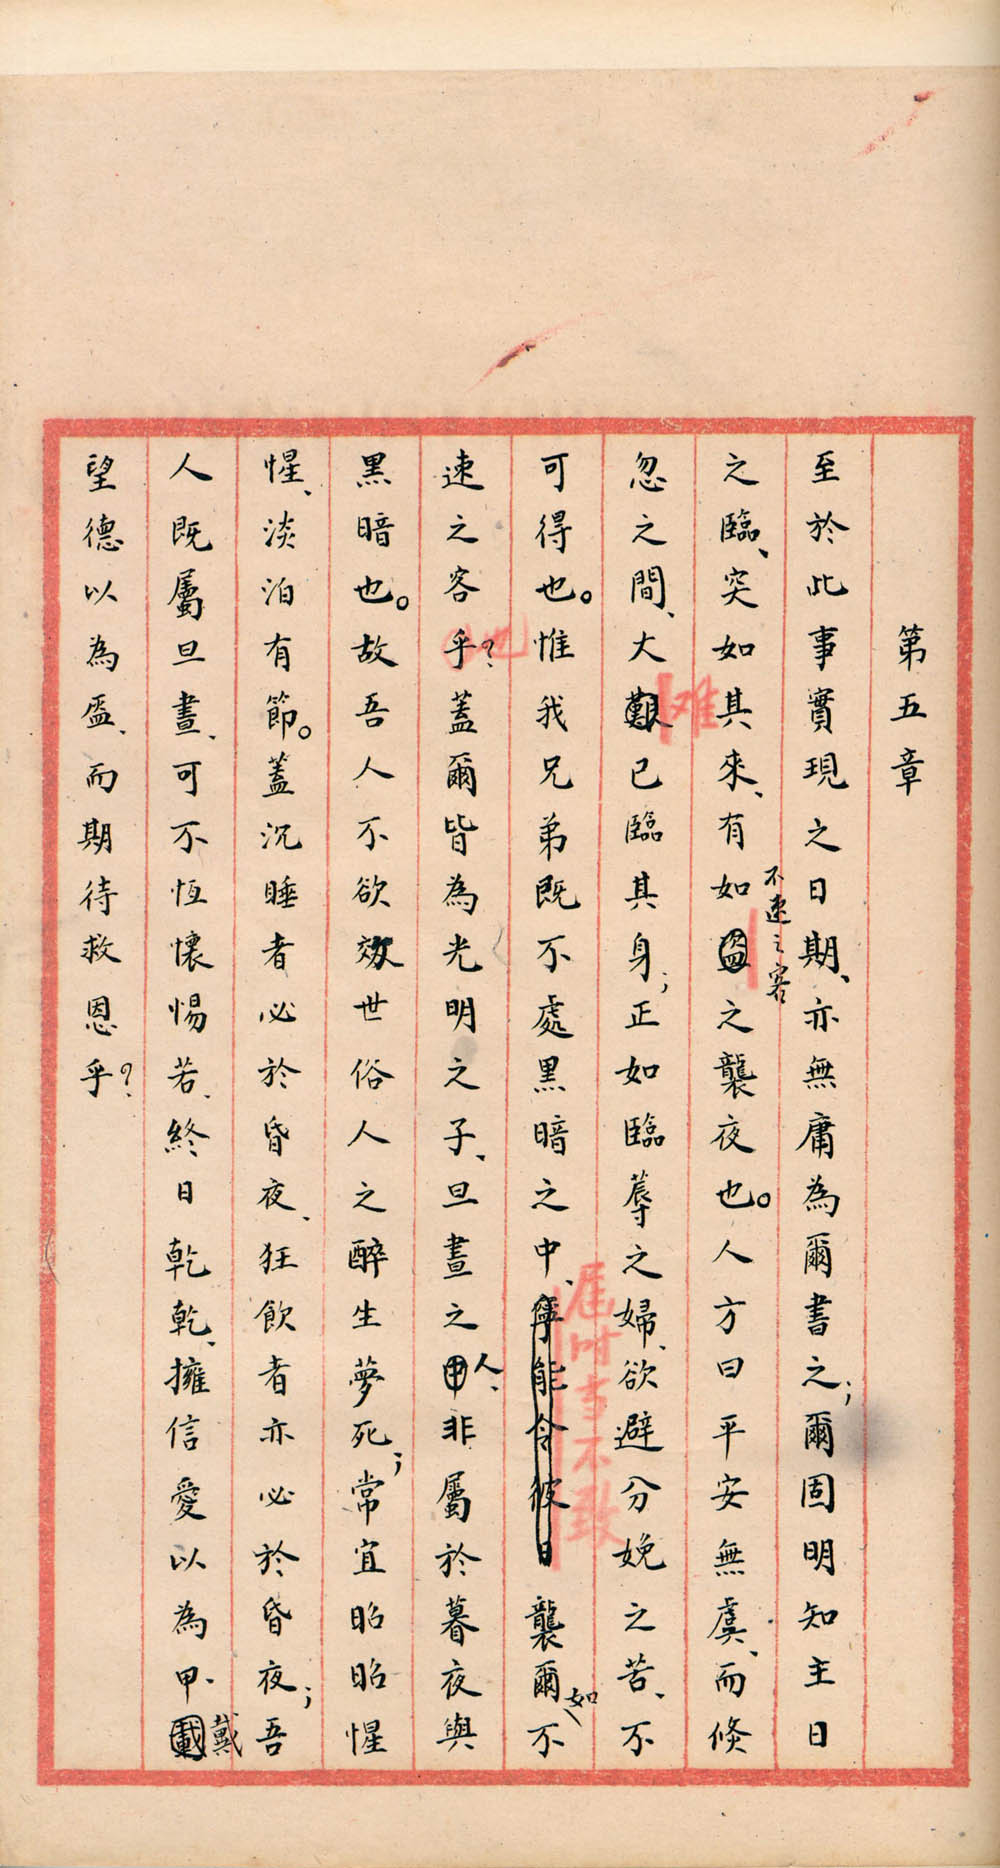 第五章
至於此事實現之日期、亦無庸為爾書之；爾固明知主日
之臨、突如其來、有如盜之襲夜也。人方曰平安無虞、而倏
不速之客
忽之間、大難已臨其身；正如臨蓐之婦、欲避分娩之苦、不
难
可得也。惟我兄弟既不處黑暗之中、寧能令彼日襲爾不
如
届时当不致
速之客乎？蓋爾皆為光明之子、旦晝之甲非屬於暮夜與
人、
也
黑暗也。故吾人不欲效世俗人之醉生夢死；常宜昭昭惺
惺、淡泊有節。蓋沉睡者必於昏夜、狂飲者亦必於昏夜；吾
人既屬旦晝、可不恆懷惕若、終日乾乾、擁信愛以為甲、載
戴
望德以為盔、而期待救恩乎？